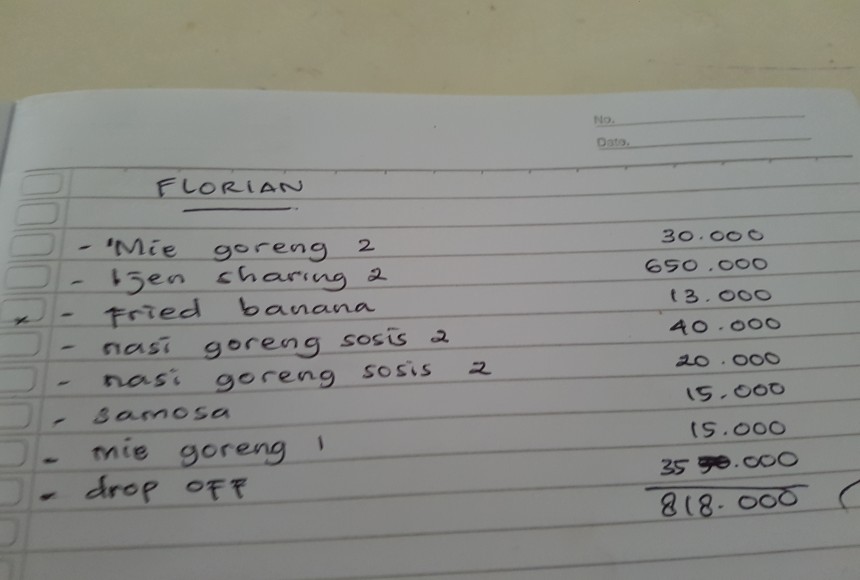 No.
Date.
FLORIAN
- Mie goreng 2 30.000
- Ijen sharing 2 650.000
x - Fried banana 13.000
- nasi goreng sosis 2 40.000
- nasi goreng sosis 2 20.000
- samosa 15.000
- mie goreng 1 15.000
- drop off 35.000
818.000